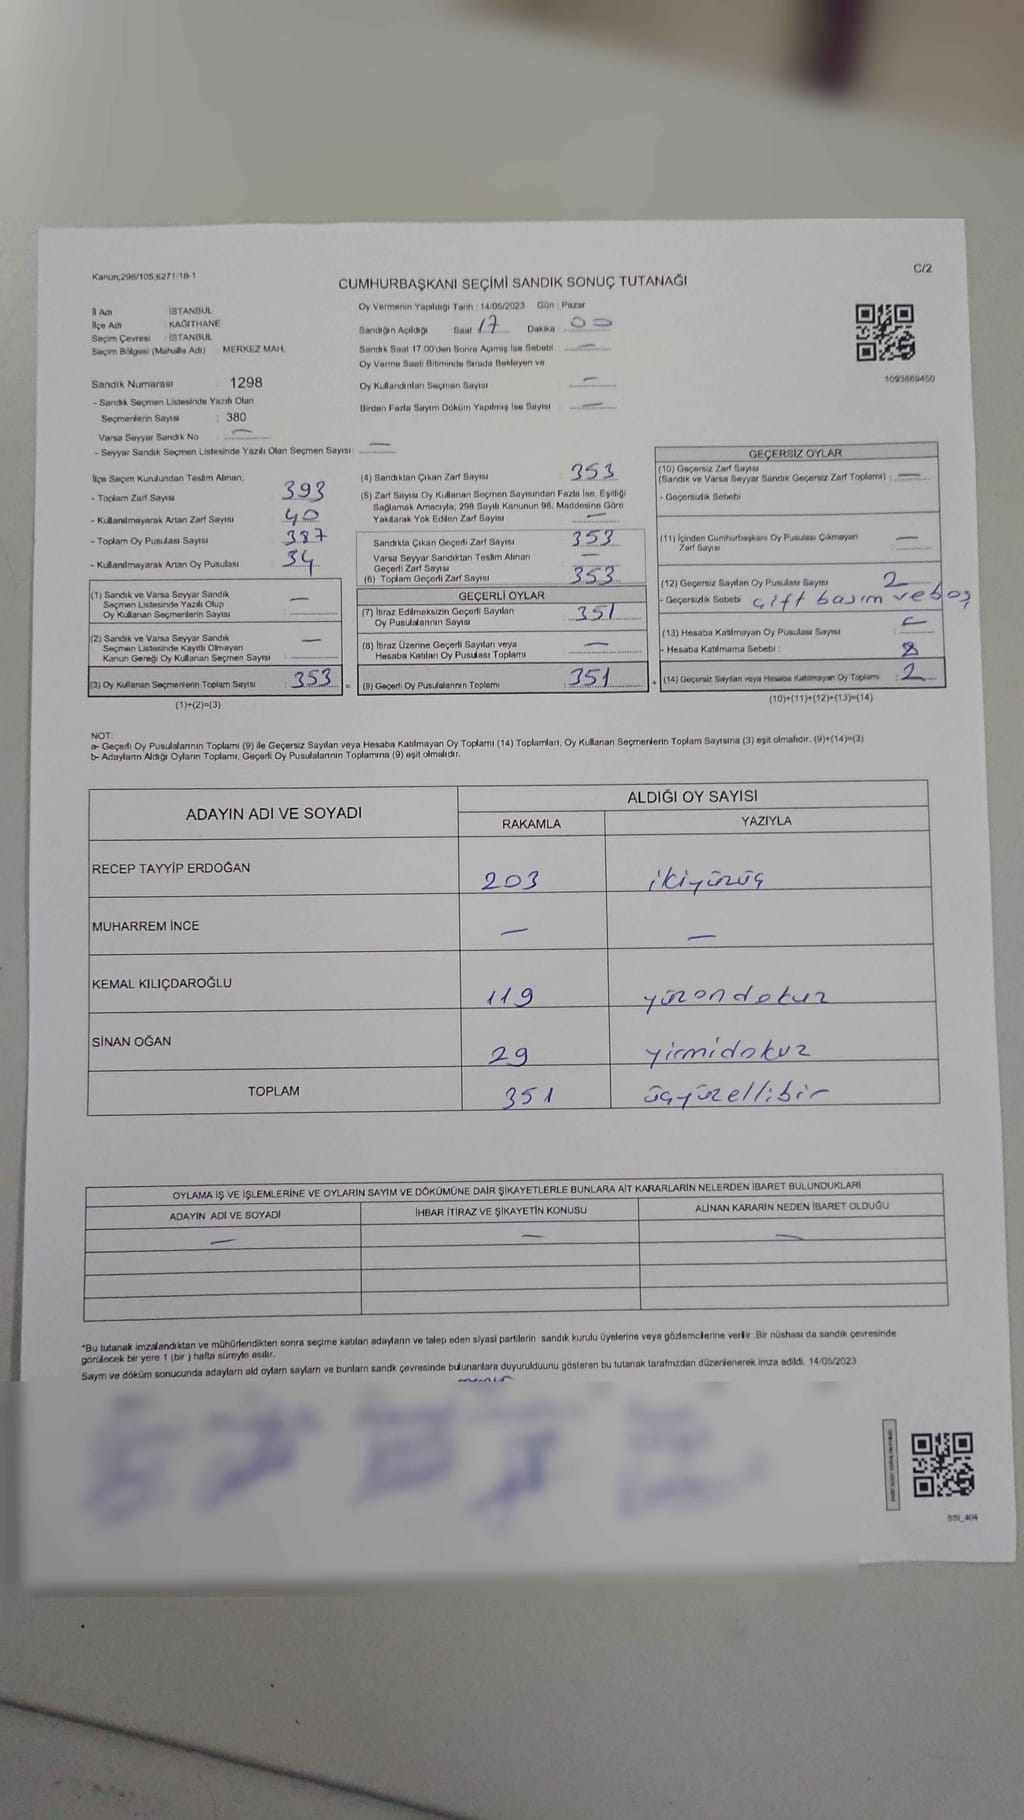 Kanun;298/105,6271/18-1
C/2
CUMHURBAŞKANI SEÇİMİ SANDIK SONUÇ TUTANAĞI
İl Adı : İSTANBUL
İlçe Adı : KAĞITHANE
Seçim Çevresi : İSTANBUL
Seçim Bölgesi (Mahalle Adı) : MERKEZ MAH.
Sandık Numarası : 1298
- Sandık Seçmen Listesinde Yazılı Olan
Seçmenlerin Sayısı : 380
Varsa Seyyar Sandık No : —
- Seyyar Sandık Seçmen Listesinde Yazılı Olan Seçmen Sayısı: —
Oy Vermenin Yapıldığı Tarih : 14/05/2023 Gün : Pazar
Sandığın Açıldığı Saat 17 Dakika : 00
Sandık Saat 17:00'den Sonra Açımış İse Sebebi —
Oy Verme Saati Bitiminde Sırada Bekleyen ve
Oy Kullandırılan Seçmen Sayısı —
Birden Fazla Sayım Döküm Yapılmış İse Sayısı —
1093669450
İlçe Seçim Kurulundan Teslim Alınan;
- Toplam Zarf Sayısı 393
- Kullanılmayarak Artan Zarf Sayısı 40
- Toplam Oy Pusulası Sayısı 387
- Kullanılmayarak Artan Oy Pusulası 34
(1) Sandık ve Varsa Seyyar Sandık
Seçmen Listesinde Yazılı Olup
Oy Kullanan Seçmenlerin Sayısı —
(2) Sandık ve Varsa Seyyar Sandık
Seçmen Listesinde Kayıtlı Olmayan
Kanun Gereği Oy Kullanan Seçmen Sayısı —
(3) Oy Kullanan Seçmenlerin Toplam Sayısı 353 =
(1)+(2)=(3)
(4) Sandıktan Çıkan Zarf Sayısı 353
(5) Zarf Sayısı Oy Kullanan Seçmen Sayısından Fazla İse, Eşitliği
Sağlamak Amacıyla; 298 Sayılı Kanunun 98. Maddesine Göre
Yakılarak Yok Edilen Zarf Sayısı —
Sandıkta Çıkan Geçerli Zarf Sayısı 353
Varsa Seyyar Sandıktan Teslim Alınan
Geçerli Zarf Sayısı —
(6) Toplam Geçerli Zarf Sayısı 353
GEÇERLİ OYLAR
(7) İtiraz Edilmeksizin Geçerli Sayılan
Oy Pusulalarının Sayısı 351
(8) İtiraz Üzerine Geçerli Sayılan veya
Hesaba Katılan Oy Pusulası Toplamı —
(9) Geçerli Oy Pusulalarının Toplamı 351 +
GEÇERSİZ OYLAR
(10) Geçersiz Zarf Sayısı
(Sandık ve Varsa Seyyar Sandık Geçersiz Zarf Toplamı) : —
- Geçersizlik Sebebi
(11) İçinden Cumhurbaşkanı Oy Pusulası Çıkmayan
Zarf Sayısı —
(12) Geçersiz Sayılan Oy Pusulası Sayısı 2
- Geçersizlik Sebebi çift basım ve boş
(13) Hesaba Katılmayan Oy Pusulası Sayısı
- Hesaba Katılmama Sebebi :
(14) Geçersiz Sayılan veya Hesaba Katılmayan Oy Toplamı : 2
(10)+(11)+(12)+(13)=(14)
NOT:
a- Geçerli Oy Pusulalarının Toplamı (9) ile Geçersiz Sayılan veya Hesaba Katılmayan Oy Toplamı (14) Toplamları, Oy Kullanan Seçmenlerin Toplam Sayısına (3) eşit olmalıdır. (9)+(14)=(3)
b- Adayların Aldığı Oyların Toplamı, Geçerli Oy Pusulalarının Toplamına (9) eşit olmalıdır.
ADAYIN ADI VE SOYADI
ALDIĞI OY SAYISI
RAKAMLA YAZIYLA
RECEP TAYYİP ERDOĞAN 203 ikiyüzüç
MUHARREM İNCE — —
KEMAL KILIÇDAROĞLU 119 yüzondokuz
SİNAN OĞAN 29 yirmidokuz
TOPLAM 351 üçyüzellibir
OYLAMA İŞ VE İŞLEMLERİNE VE OYLARIN SAYIM VE DÖKÜMÜNE DAİR ŞİKAYETLERLE BUNLARA AİT KARARLARIN NELERDEN İBARET BULUNDUKLARI
ADAYIN ADI VE SOYADI İHBAR İTİRAZ VE ŞİKAYETİN KONUSU ALINAN KARARIN NEDEN İBARET OLDUĞU
— — —
*Bu tutanak imzalandıktan ve mühürlendikten sonra seçime katılan adayların ve talep eden siyasi partilerin sandık kurulu üyelerine veya gözlemcilerine verilir .Bir nüshası da sandık çevresinde
görülecek bir yere 1 (bir ) hafta süreyle asılır.
Sayım ve döküm sonucunda adayların ald oyların sayları ve bunların sandk çevresinde bulunanlara duyurulduunu gösteren bu tutanak tarafmızdan düzenlenerek imza edildi. 14/05/2023
SSİ_404